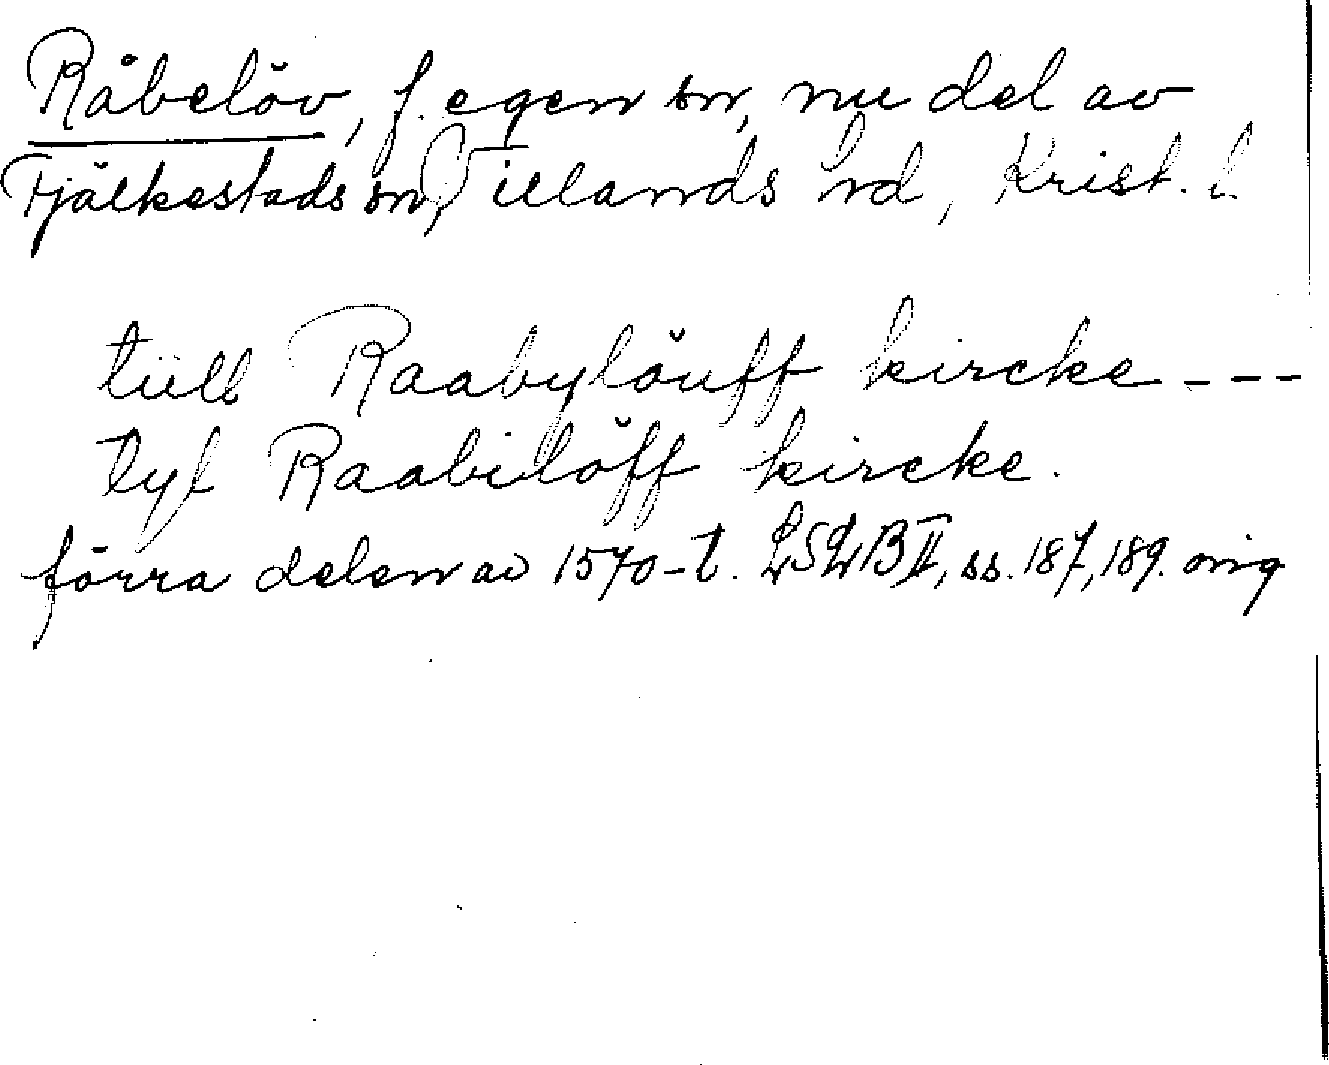 Råbelöv, f. egen sn, nu del av
Fjälkestads sn, Villands hd, Krist. l.
tüll Raabylöuff kircke ---
tyl Raabilöff kircke.
förra delen av 1570-t. LSLB II, ss. 187, 189. orig